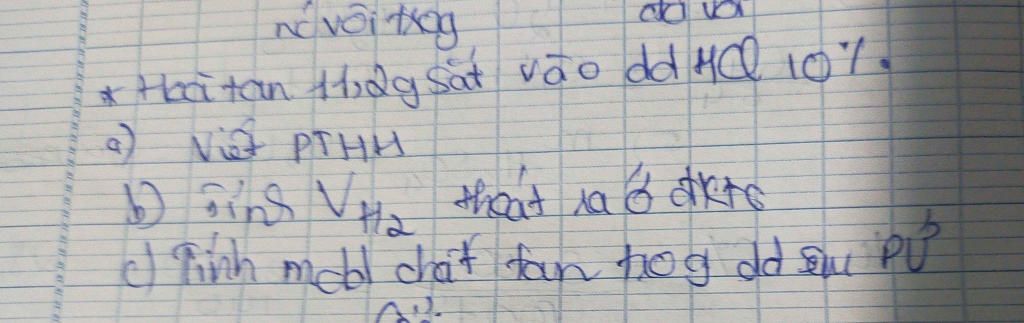 nc vôi trog
* Hoà tan 11,2g sắt vào dd HCl 10%.
a) Viết PTHH
b) Tính V H2 thoát ra ở đktc
c) Tính mdd chất tan trog dd sau PƯ